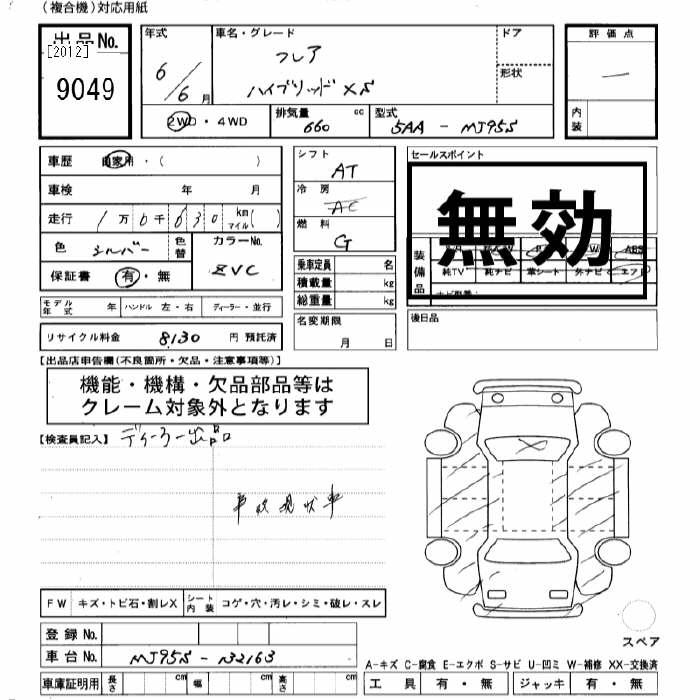 (複合機)対応用紙
出品No.
[2012]
9049
年式
6/6月
車名・グレード
フレア
ハイブリッドXS
ドア
形状
評価点
内装
2WD・4WD
排気量 660 cc
型式 5AA-MJ95S
車歴 自家用・( )
車検 年 月
走行 1万6千630 km マイル( )
色 シルバー 色替
カラーNo. ZVC
保証書 有・無
モデル年式 年 ハンドル 左・右 ディーラー・並行
リサイクル料金 8130 円 預託済
シフト AT
冷房 AC
燃料 G
乗車定員 名
積載量 kg
総重量 kg
名変期限
月 日
セールスポイント
無効
装備品
ABS
純TV 純ナビ 革シート 外ナビ エアB
後日品
【出品店申告欄(不良箇所・欠品・注意事項等)】
機能・機構・欠品部品等は
クレーム対象外となります
【検査員記入】 ディーラー出品
事故現状車
FW キズ・トビ石・割レX シート内装 コゲ・穴・汚レ・シミ・破レ・スレ
登録No.
車台No. MJ95S-132163
車庫証明用 長さ cm 幅 cm 高さ cm
スペア
A-キズ C-腐食 E-エクボ S-サビ U-凹ミ W-補修 XX-交換済
工具 有・無 ジャッキ 有・無